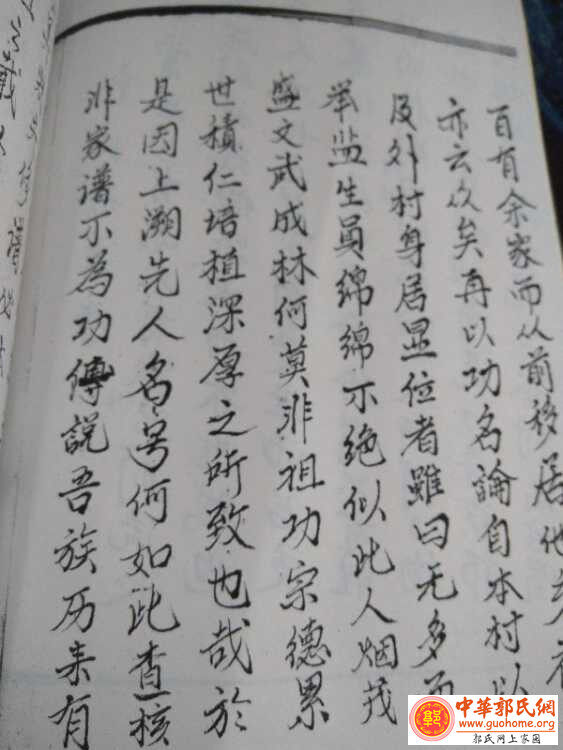 百有余家而从前移居他
亦云众矣再以功名論自本村以
及外村身居显位者雖曰无多而
举监生員绵绵不绝似此人烟茂
盛文武成林何莫非祖功宗德累
世積仁培植深厚之所致也哉於
是因上溯先人名号何如此查核
非家谱不為功傳説吾族历来有
中華郭氏網
www.guohome.org
郭氏网上家园